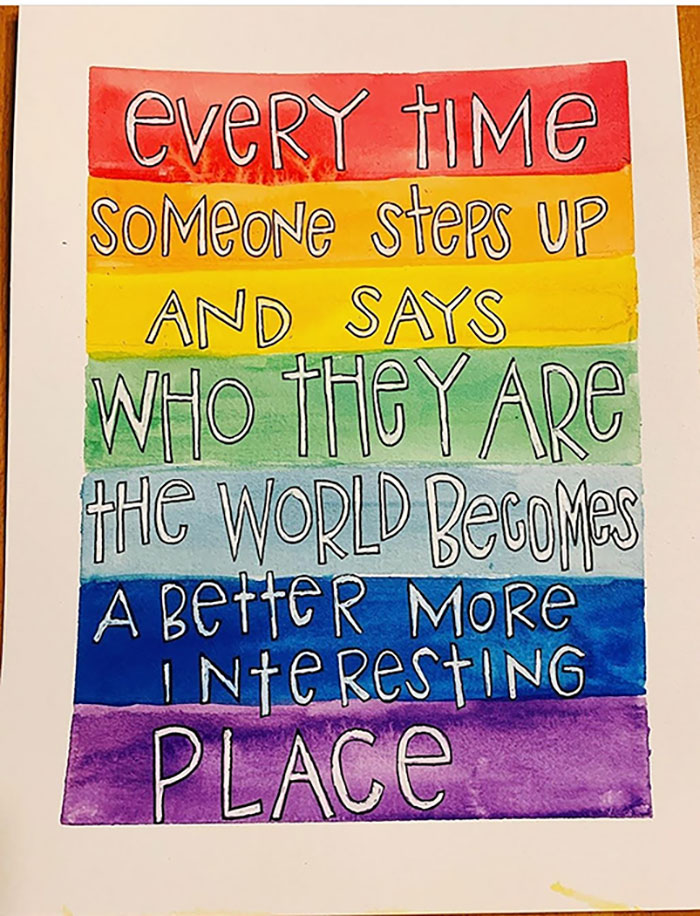 eveRY tIME
SOMeONe stePS UP
AND SAYS
WHO tHeY ARe
tHe WORLD BeCOMes
A BetteR MORe
INteRestING
PLACe